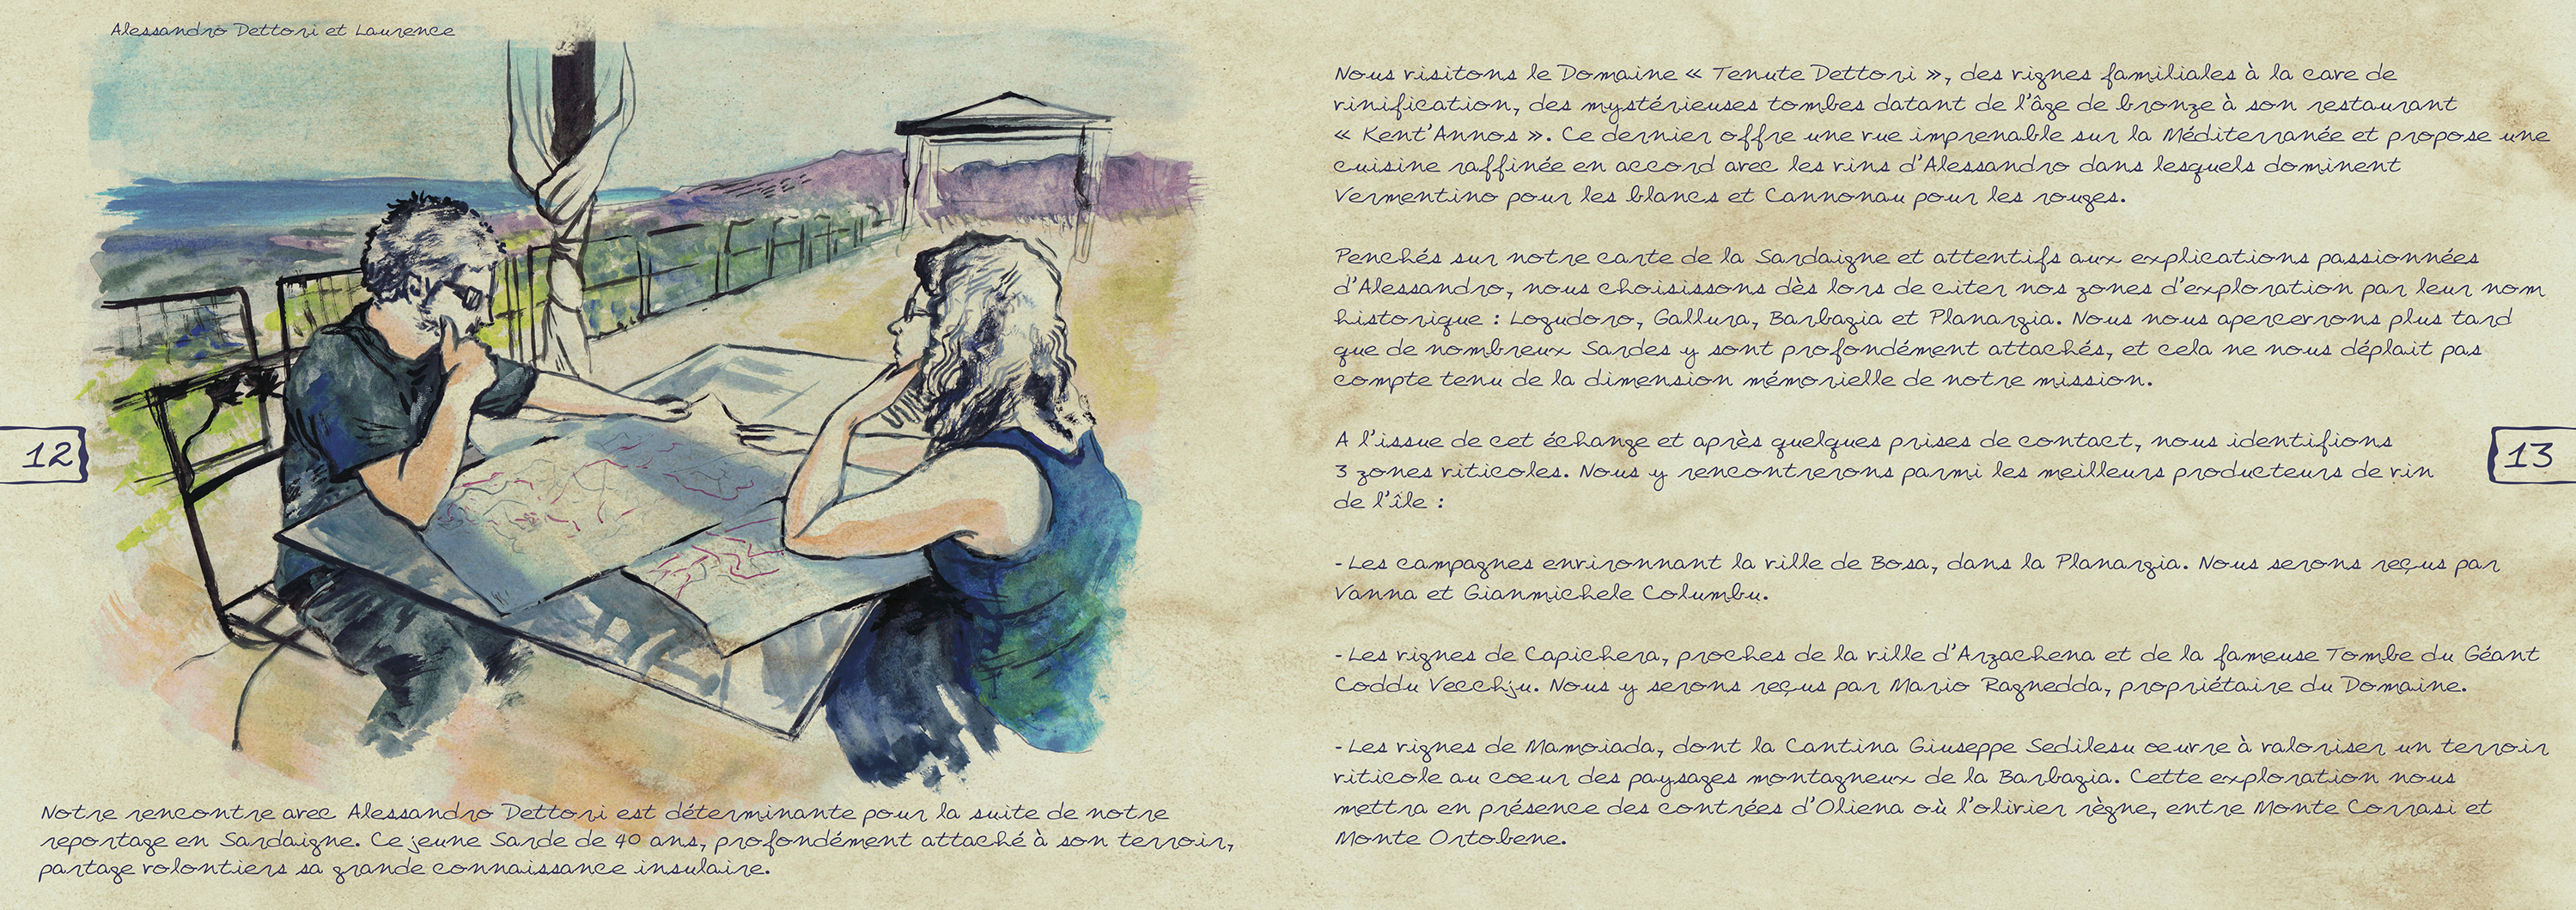 Alessandro Dettori et Laurence
12
Notre rencontre avec Alessandro Dettori est déterminante pour la suite de notre
reportage en Sardaigne. Ce jeune Sarde de 40 ans, profondément attaché à son terroir,
partage volontiers sa grande connaissance insulaire.
Nous visitons le Domaine « Tenute Dettori », des vignes familiales à la cave de
vinification, des mystérieuses tombes datant de l'âge de bronze à son restaurant
« Kent'Annos ». Ce dernier offre une vue imprenable sur la Méditerranée et propose une
cuisine raffinée en accord avec les vins d'Alessandro dans lesquels dominent
Vermentino pour les blancs et Cannonau pour les rouges.
Penchés sur notre carte de la Sardaigne et attentifs aux explications passionnées
d'Alessandro, nous choisissons dès lors de citer nos zones d'exploration par leur nom
historique : Logudoro, Gallura, Barbagia et Planargia. Nous nous apercevrons plus tard
que de nombreux Sardes y sont profondément attachés, et cela ne nous déplait pas
compte tenu de la dimension mémorielle de notre mission.
A l'issue de cet échange et après quelques prises de contact, nous identifions
3 zones viticoles. Nous y rencontrerons parmi les meilleurs producteurs de vin
de l'île :
-Les campagnes environnant la ville de Bosa, dans la Planargia. Nous serons reçus par
Vanna et Gianmichele Columbu.
-Les vignes de Capichera, proches de la ville d'Arzachena et de la fameuse Tombe du Géant
Coddu Vecchju. Nous y serons reçus par Mario Ragnedda, propriétaire du Domaine.
-Les vignes de Mamoiada, dont la Cantina Giuseppe Sedilesu œuvre à valoriser un terroir
viticole au coeur des paysages montagneux de la Barbagia. Cette exploration nous
mettra en présence des contrées d'Oliena où l'olivier règne, entre Monte Corrasi et
Monte Ortobene.
13